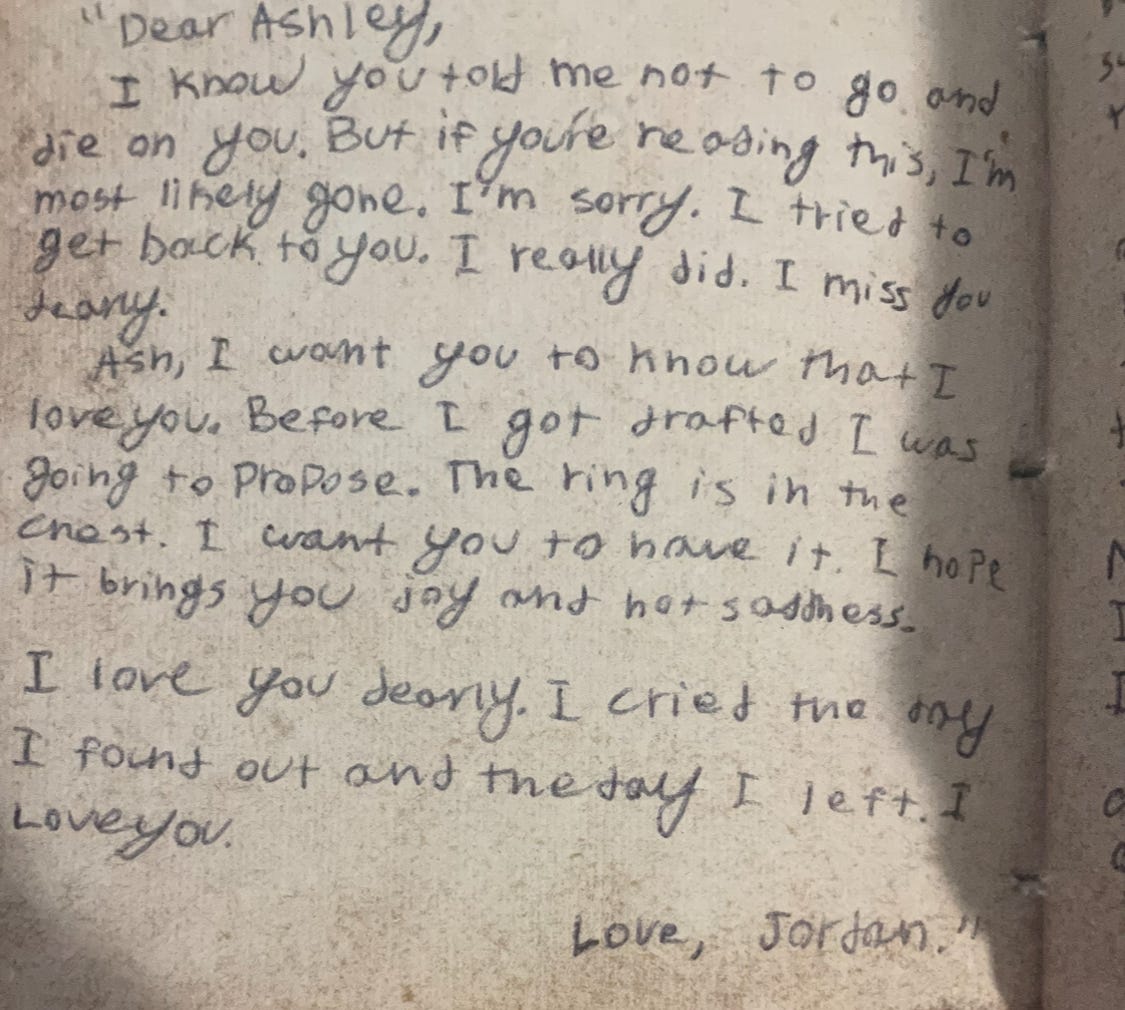 "Dear Ashley,
I know you told me not to go and
die on you. But if you're reading this, I'm
most likely gone. I'm sorry. I tried to
get back to you. I really did. I miss you
dearly.
Ash, I want you to know that I
love you. Before I got drafted I was
going to propose. The ring is in the
chest. I want you to have it. I hope
it brings you joy and not saddness.
I love you dearly. I cried the day
I found out and the day I left. I
Love you.
Love, Jordan."